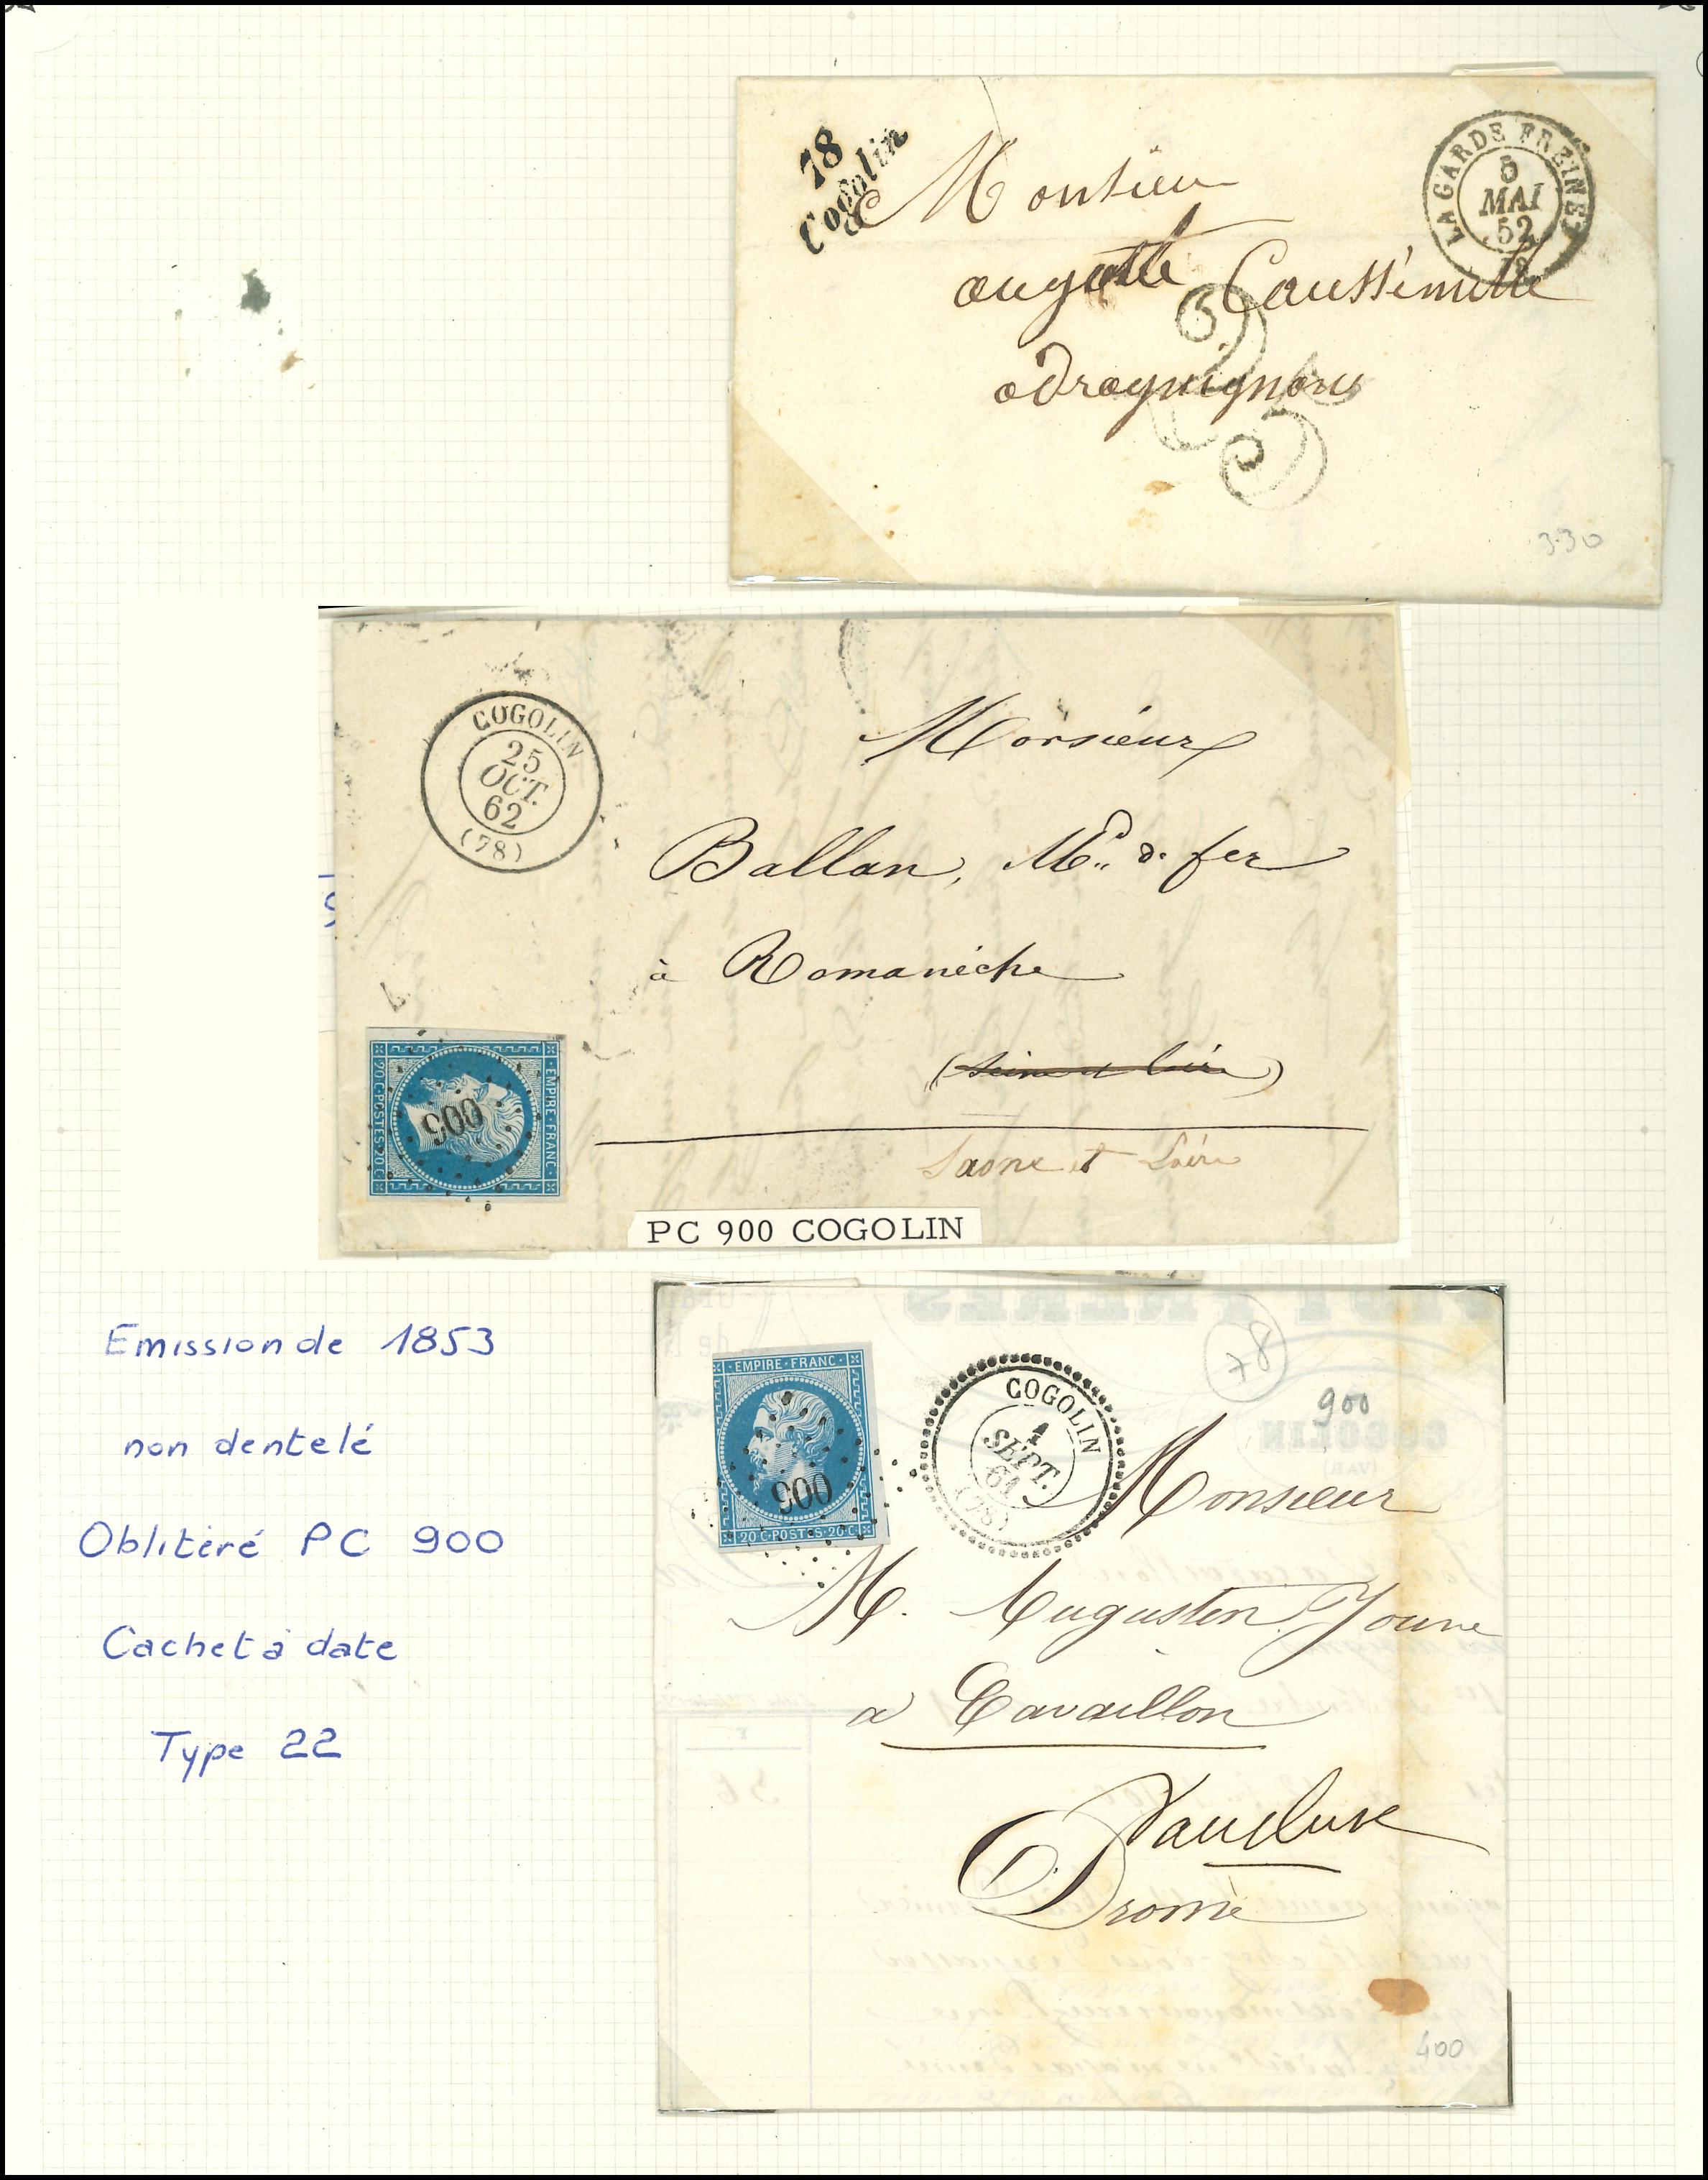 78
Cogolin
LA GARDE FREINET
5
MAI
52
78
Monsieur
auguste Caussémille
a draguignan
25
3.30
COGOLIN
25
OCT.
62
(78)
Monsieur
Ballan, Md. de fer
à Romanèche
(Seine et Loire)
Saone et Loire
EMPIRE · FRANC ·
900
20 C · POSTES · 20 C
PC 900 COGOLIN
Emission de 1853
non dentelé
Oblitéré PC 900
Cachet à date
Type 22
FRERES
COGOLIN
(VAR)
78
900
EMPIRE · FRANC ·
900
20 C · POSTES · 20 C
COGOLIN
1
SEPT.
61
(78)
Monsieur
M. Augustin Jouve
a Cavaillon
Vaucluse
Drome
400